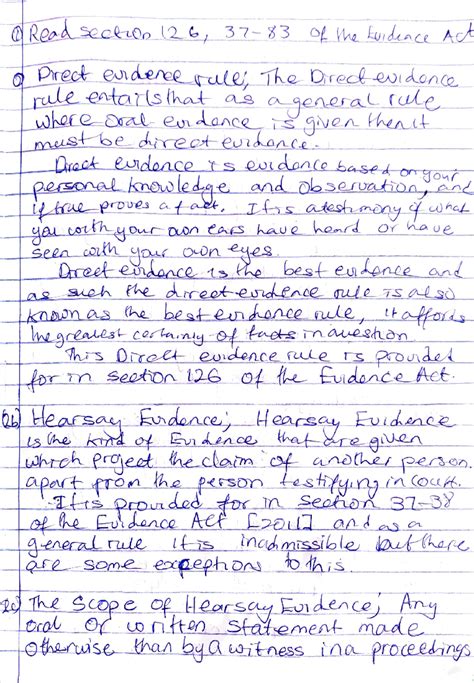 ① Read section 126, 37-83 of the Evidence Act
Direct evidence rule; The Direct evidence
rule entails that as a general rule
where oral evidence is given then it
must be direct evidence.
Direct evidence is evidence based on your
personal knowledge and observation, and
if true proves a fact. It is a testimony of what
you with your own ears have heard or have
seen with your own eyes
Direct evidence is the best evidence and
as such the direct evidence rule is also
known as the best evidence rule, it affords
the greatest certainly of facts in question.
This Direct evidence rule is provided
for in section 126 of the Evidence Act.
2b) Hearsay Evidence; Hearsay Evidence
is the kind of Evidence that are given
which project the claim of another person
apart from the person testifying in court.
It is provided for in Section 37-38
of the Evidence Act [2011] and as a
general rule it is inadmissible but there
are some exceptions to this.
2c) The Scope of Hearsay Evidence; Any
oral or written statement made
otherwise than by a witness in a proceedings